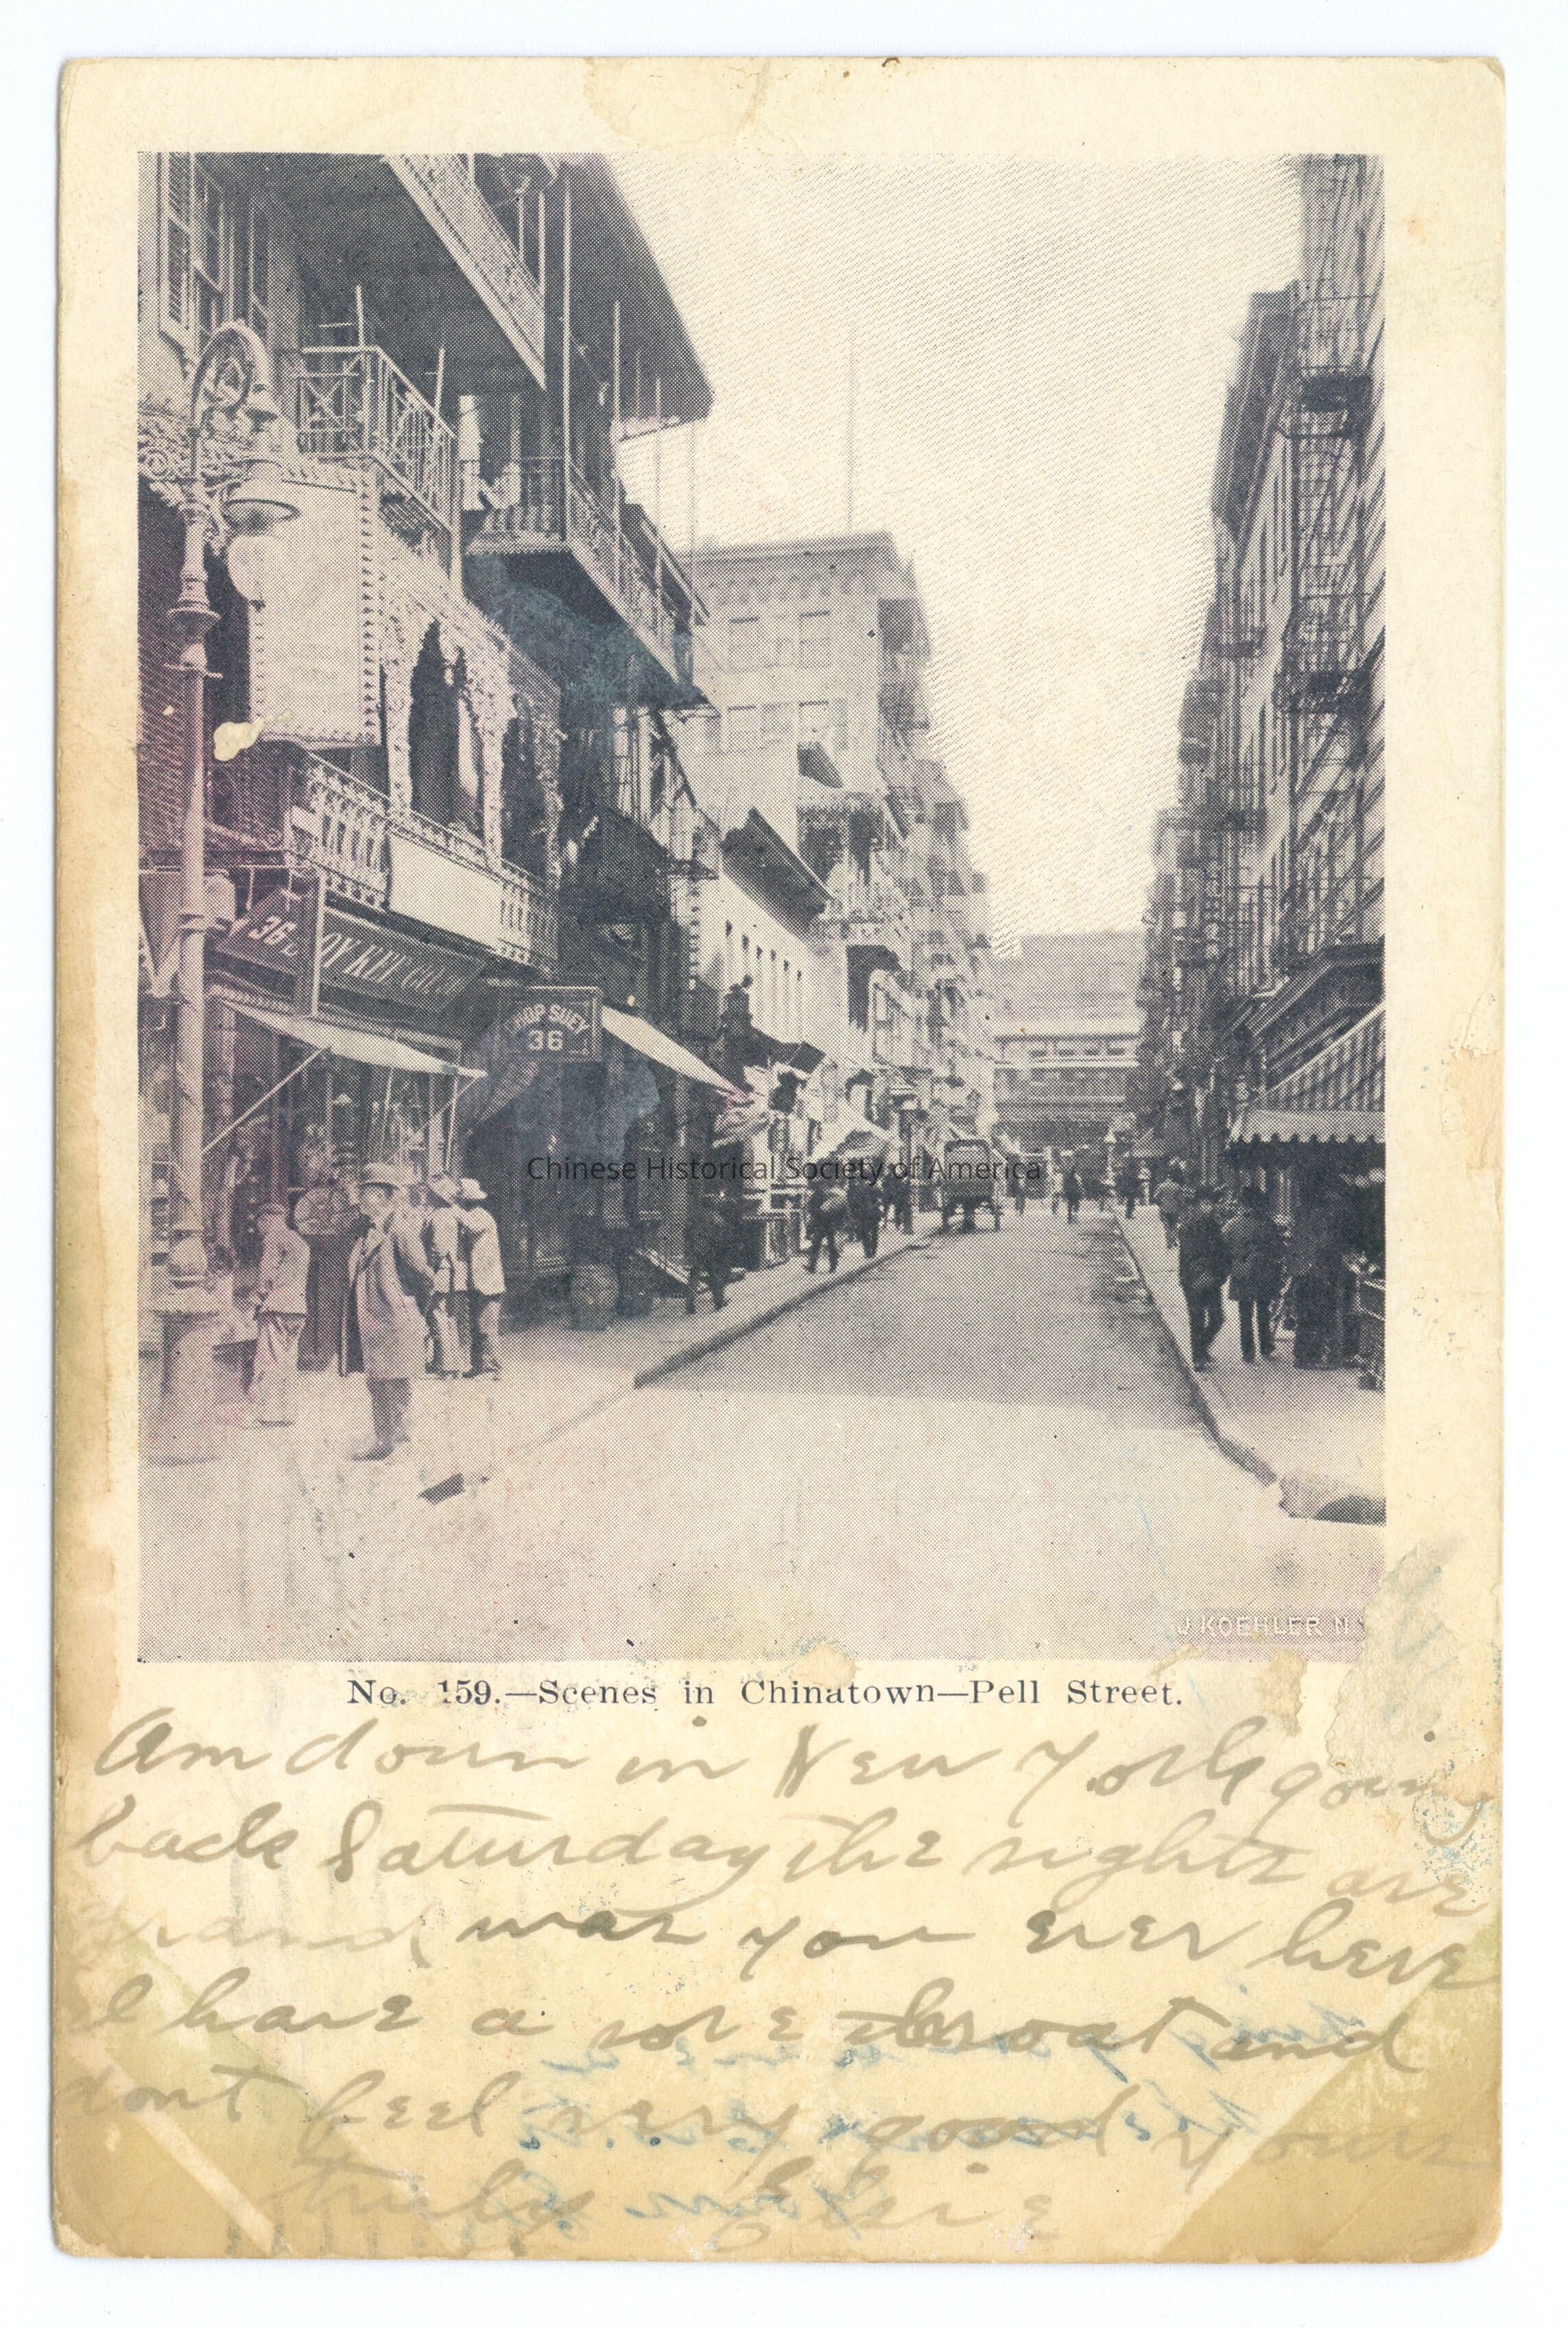 36
CHOP SUEY
36
Chinese Historical Society of America
J KOEHLER N Y
No. 159.—Scenes in Chinatown—Pell Street.
Am down in New York going
back Saturday the sights are
grand, was you ever here
I have a sore throat and
dont feel very good yours
truly Elsie